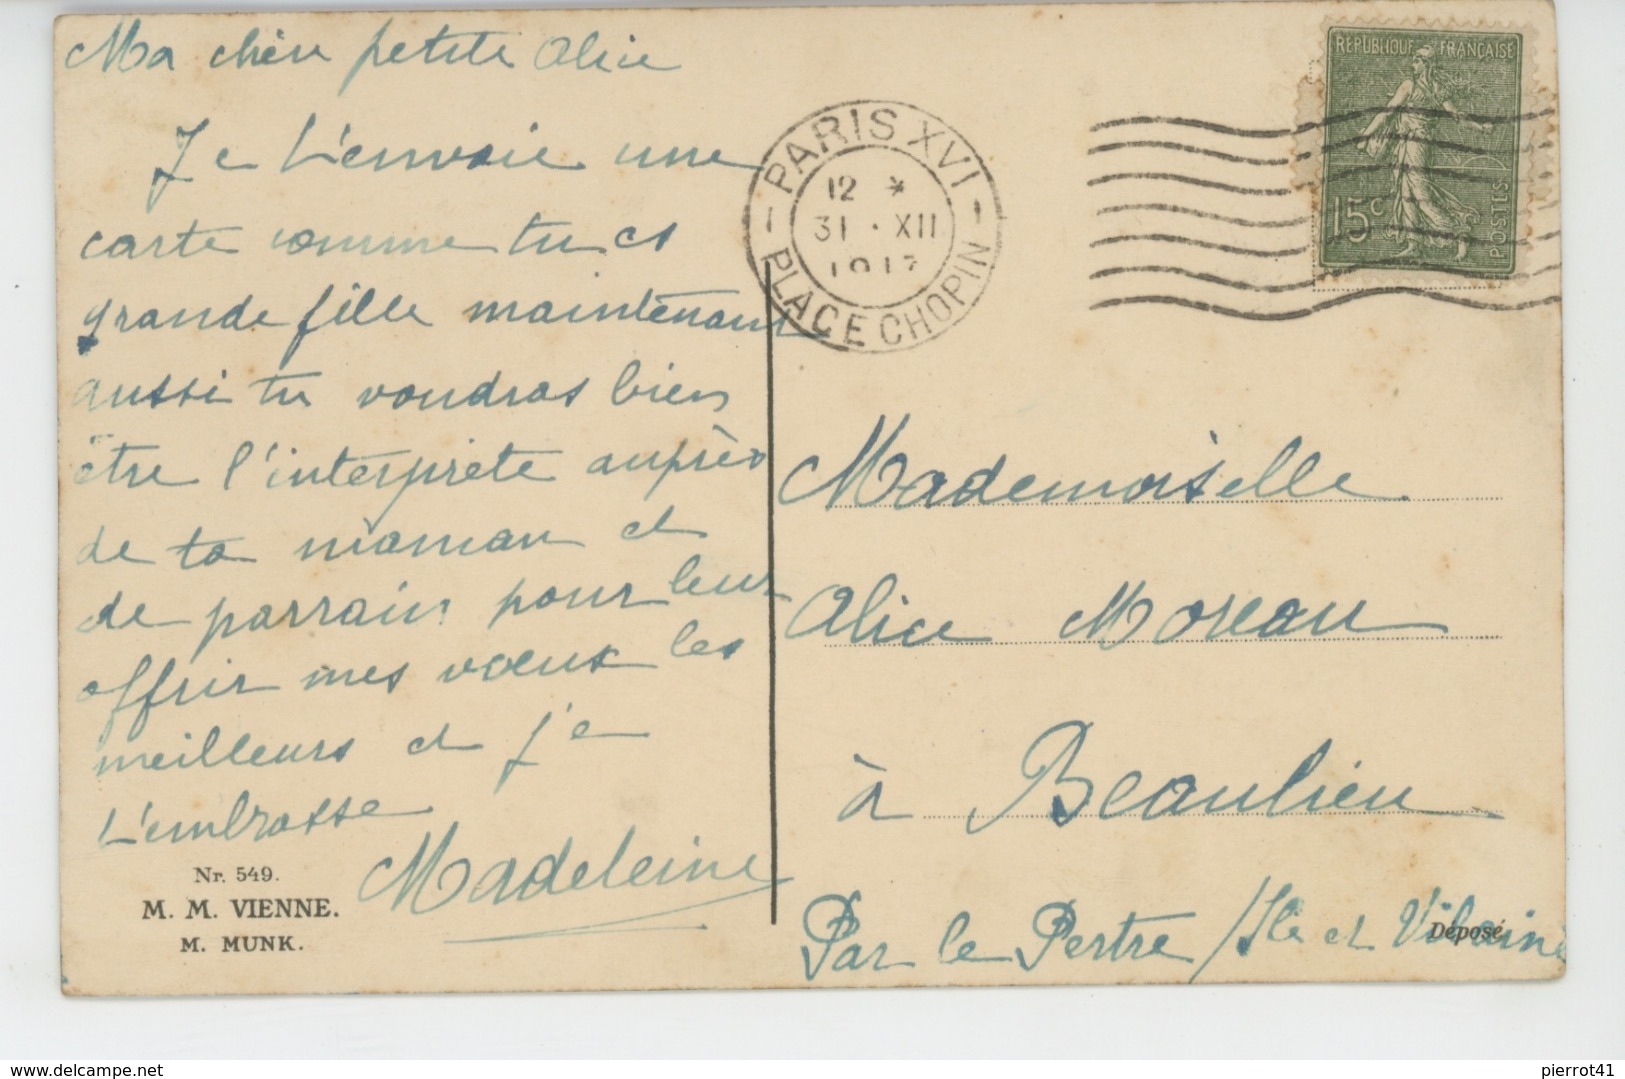 Ma chère petite Alice
Je t'envoie une
carte comme tu es
grande fille maintenant
aussi tu voudras bien
être l'interprète auprès
de ta maman et
de parrain pour leur
offrir mes vœux les
meilleurs et j'e
t'embrasse
Madeleine
Nr. 549.
M. M. VIENNE.
M. MUNK.
PARIS XVI
12 *
31 · XII
1917
PLACE CHOPIN
RÉPUBLIQUE FRANÇAISE
15c
POSTES
Mademoiselle
Alice Moreau
à Beaulieu
Par le Pertre / Ile et Vilaine
Déposé
pierrot41